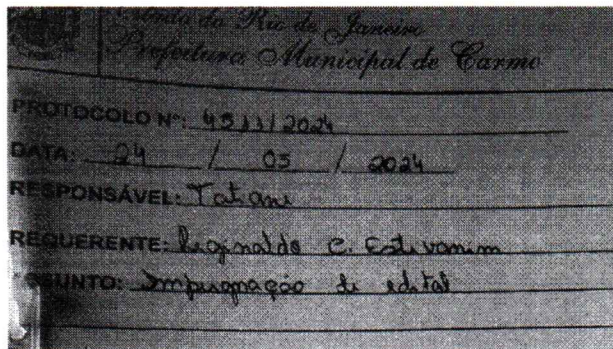 Estado do Rio de Janeiro
Prefeitura Municipal de Carmo
PROTOCOLO Nº: 4511/2024
DATA: 24 / 05 / 2024
RESPONSÁVEL: Tatiani
REQUERENTE: Reginaldo C. Estivanim
ASSUNTO: Impugnação de edital